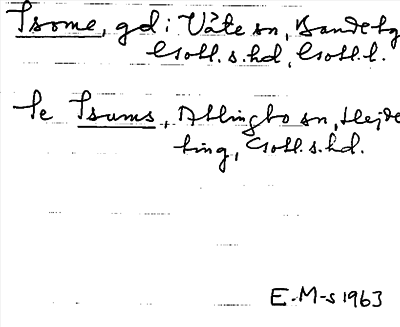 Isome, gd i Väte sn, Banda tg
Gotl. s. hd, Gotl. l.
Se Isums, Atlingbo sn, Hejde
ting, Gotl. s. hd.
E. M-s 1963